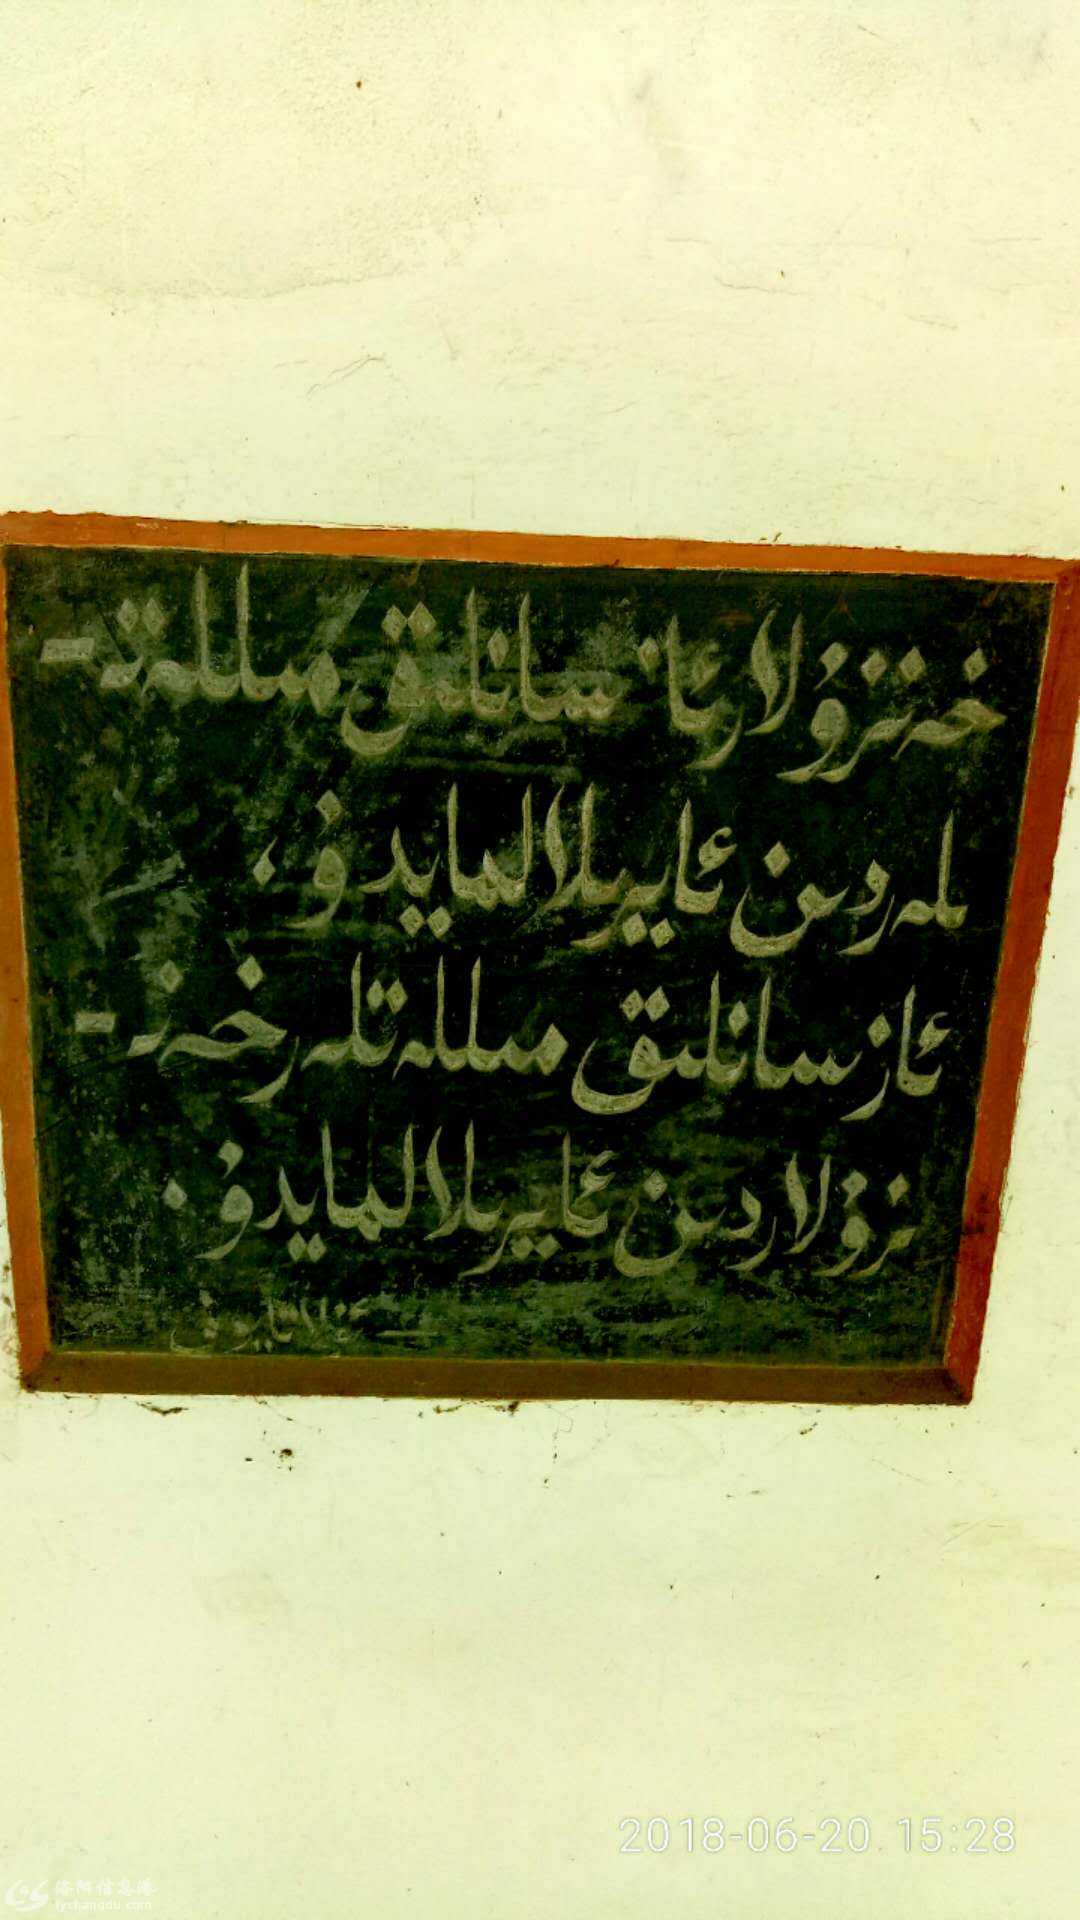 خەنزۇلار ئاز سانلىق مىللەت-
لەردىن ئايرىلالمايدۇ،
ئاز سانلىق مىللەتلەر خەن-
زۇلاردىن ئايرىلالمايدۇ.
2018-06-20 15:28
洛阳信息港
lychangdu.com